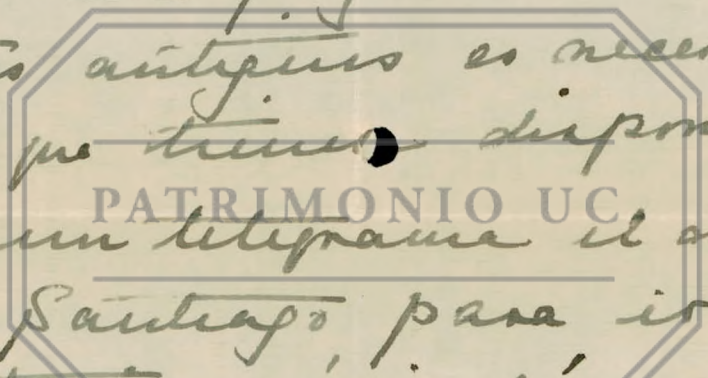 antiguos es neces
que tienen dispon
PATRIMONIO UC
un telegrama el a
Santiago, para ir